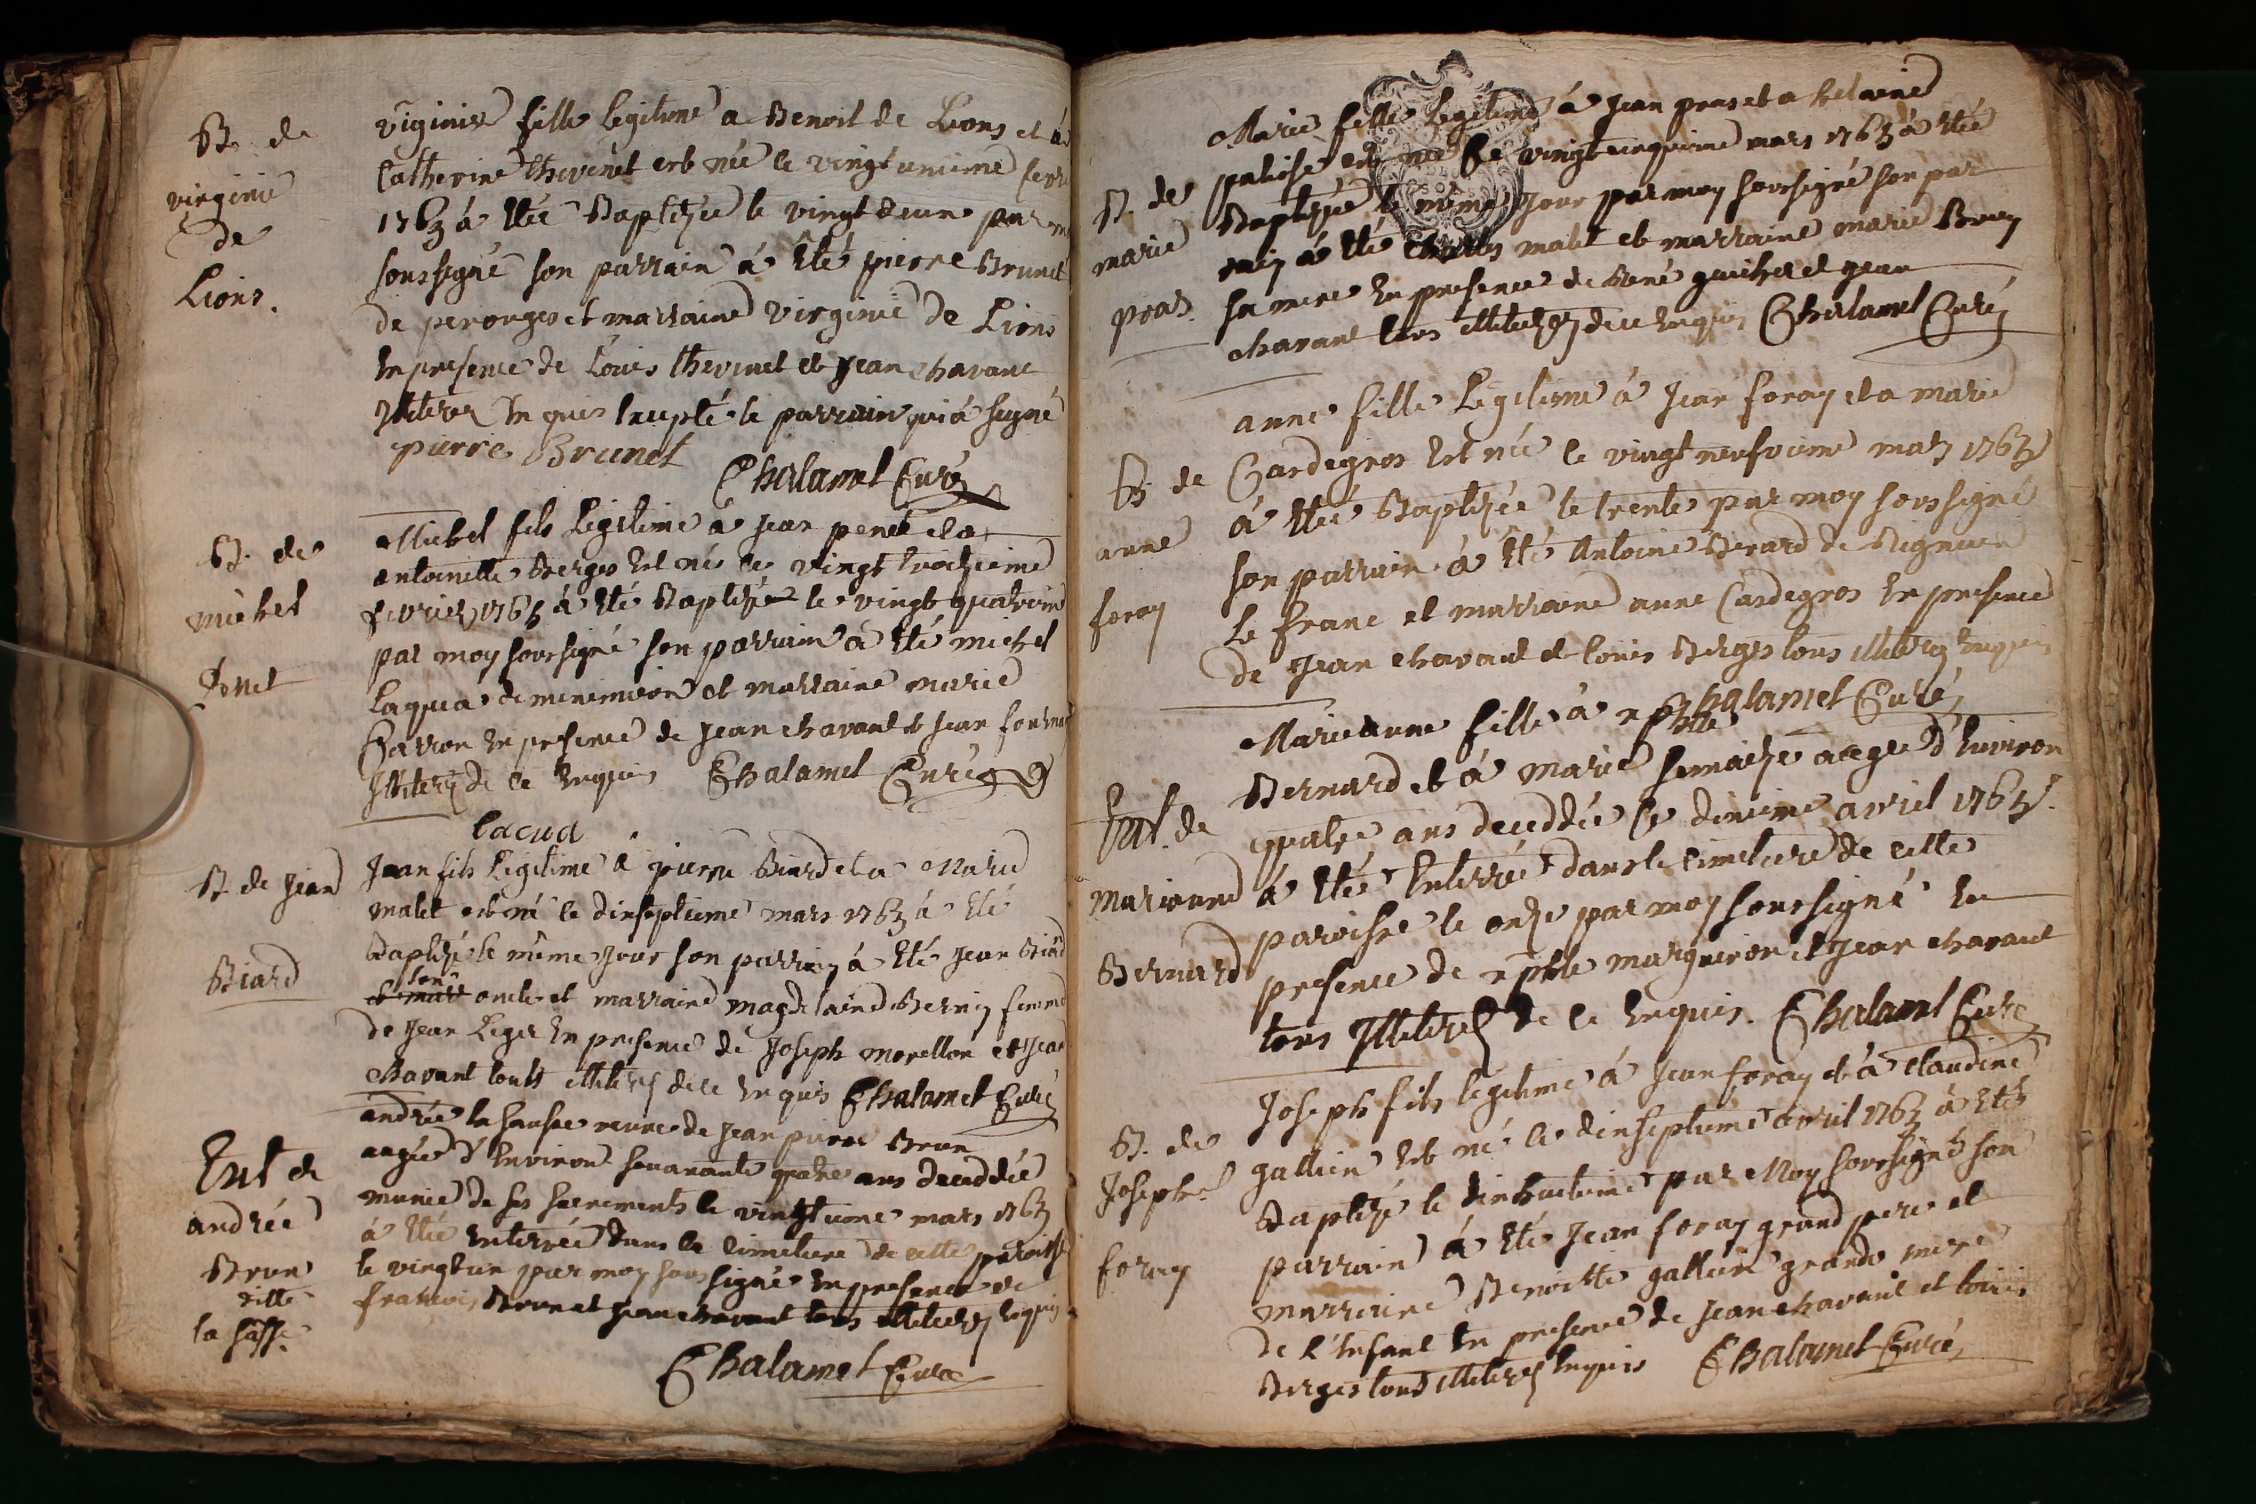 B. de
virginie
de
Lions.
viginie fille legitime a Benoit de Lions et a
Catherine thevenet est née le vingt unieme fevr
1763 á étée Baptizée le vingt deux par m
soussigné son parrain á été pierre Brunet
de perouges et marraine virginie de Lions
En presence de Louis thevenet et Jean chavant
Illiterez Enquis Excepté le parrain qui á signé
pierre Brunet
Chalamel Curé
B. de
michel
Penet
Michel fils Legitime á Jean penet et a
antoinette Berges Est né le vingt troizieme
fevrier 1763 á été Baptizé le vingt quatrieme
par moy soussigné son parrain á été michel
Laqua de meximieux et marraine marie
Carron En presence de Jean chavant et Jean
Illiterez de ce Enquis Chalamel Curé
Lacua
B. de Jean
Biard
Jean fils Legitime á pierre Biard et a Marie
malet est né le dixseptieme mars 1763 á été
Baptizé le même Jour son parrain á été Jean Biard
son
et marr oncle et marraine magdelaine Bernin femme
de Jean Leger En presence de Joseph morellon et Jean
Chavant touts illiterez de ce Enquis Chalamel Curé
Ent de
andrée
Brun
ditte
la sasse
andrée la sausse veuve de Jean pierre Brun
aagée d'Environ soixante quatre ans decedée
munie de ses sacrements le vingtieme mars 1763
á étée Enterrée dans le cimetiere de cette paroisse
le vingt un par moy soussigné En presence de
francois Brun et Jean chavant tous illiterez Enquis
Chalamel Curé
B. de
marie
pras.
Marie fille Legitime á Jean pras et a
palisse est née le vingt cinquieme mars 1763 á étée
Baptizée le même Jour par moy soussigné son par
rain á été Charles malet et marraine marie Brun
sa mere En presence de René et Jean
chavant tous illiterez de ce Enquis Chalamel Curé
B. de
anne
foray
anne fille Legitime á Jean foray et a marie
Cardegros Est née le vingt neufvieme mars 1763
á étée Baptizée le trente par moy soussigné
son parrain á été Antoine Berard de Rignieux
Le franc et marraine anne Cardegros En presence
de Jean chavant et Louis Berges tous illiterez Enquis
Chalamel Curé
Ent. de
marianne
Bernard
Marie anne fille á
Bernard et á marie aagée d'Environ
quatre ans decedée le dixieme avril 1763
á étée Enterrée dans le cimetiere de cette
paroisse le onze par moy soussigné En
presence de margueron et Jean chavant
tous Illiterez de ce Enquis. Chalamel Curé
B. de
Joseph
foray
Joseph fils legitime á Jean foray et á claudine
gallien est né le dixseptieme avril 1763 á été
Baptizé le dixhuitieme par Moy soussigné son
parrain á été Jean foray grand pere et
marraine Benoitte gallien grande mere
de l'Enfant En presence de Jean chavant et Louis
Berges tous illiterez Enquis Chalamel Curé